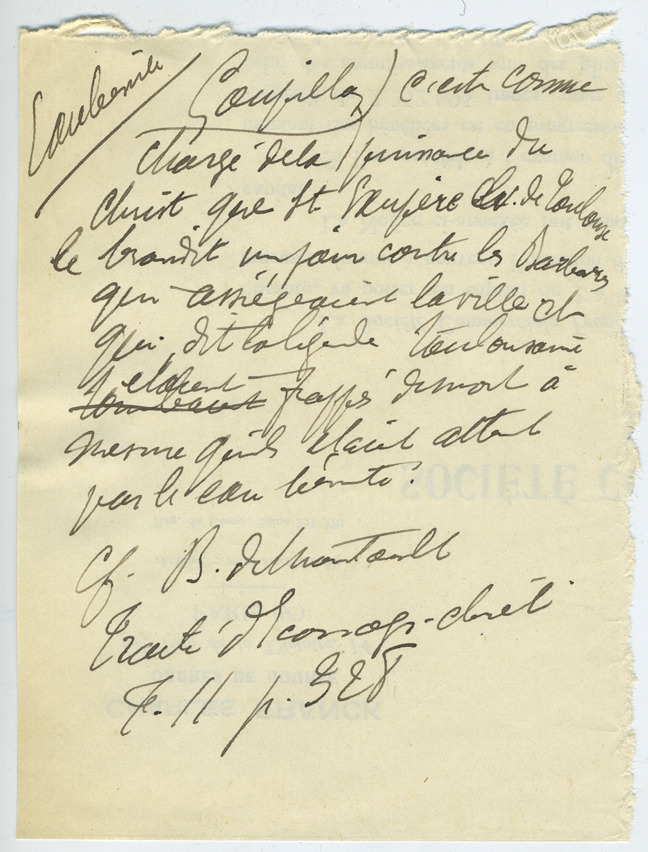 Eau bénite
Goupillon) c'est comme
chargé de la puissance du
Christ que St Exupère Ev. de Toulouse
le brandit un jour contre les Barbares
qui assiégeaient la ville et
qui, dit la légende toulousaine
étaient
tombaient frappés de mort à
mesure qu'ils étaient atteint
par l'eau bénite.
Cf. B. de Montault
Traité d'Iconogr. chrét
T. II p. 328